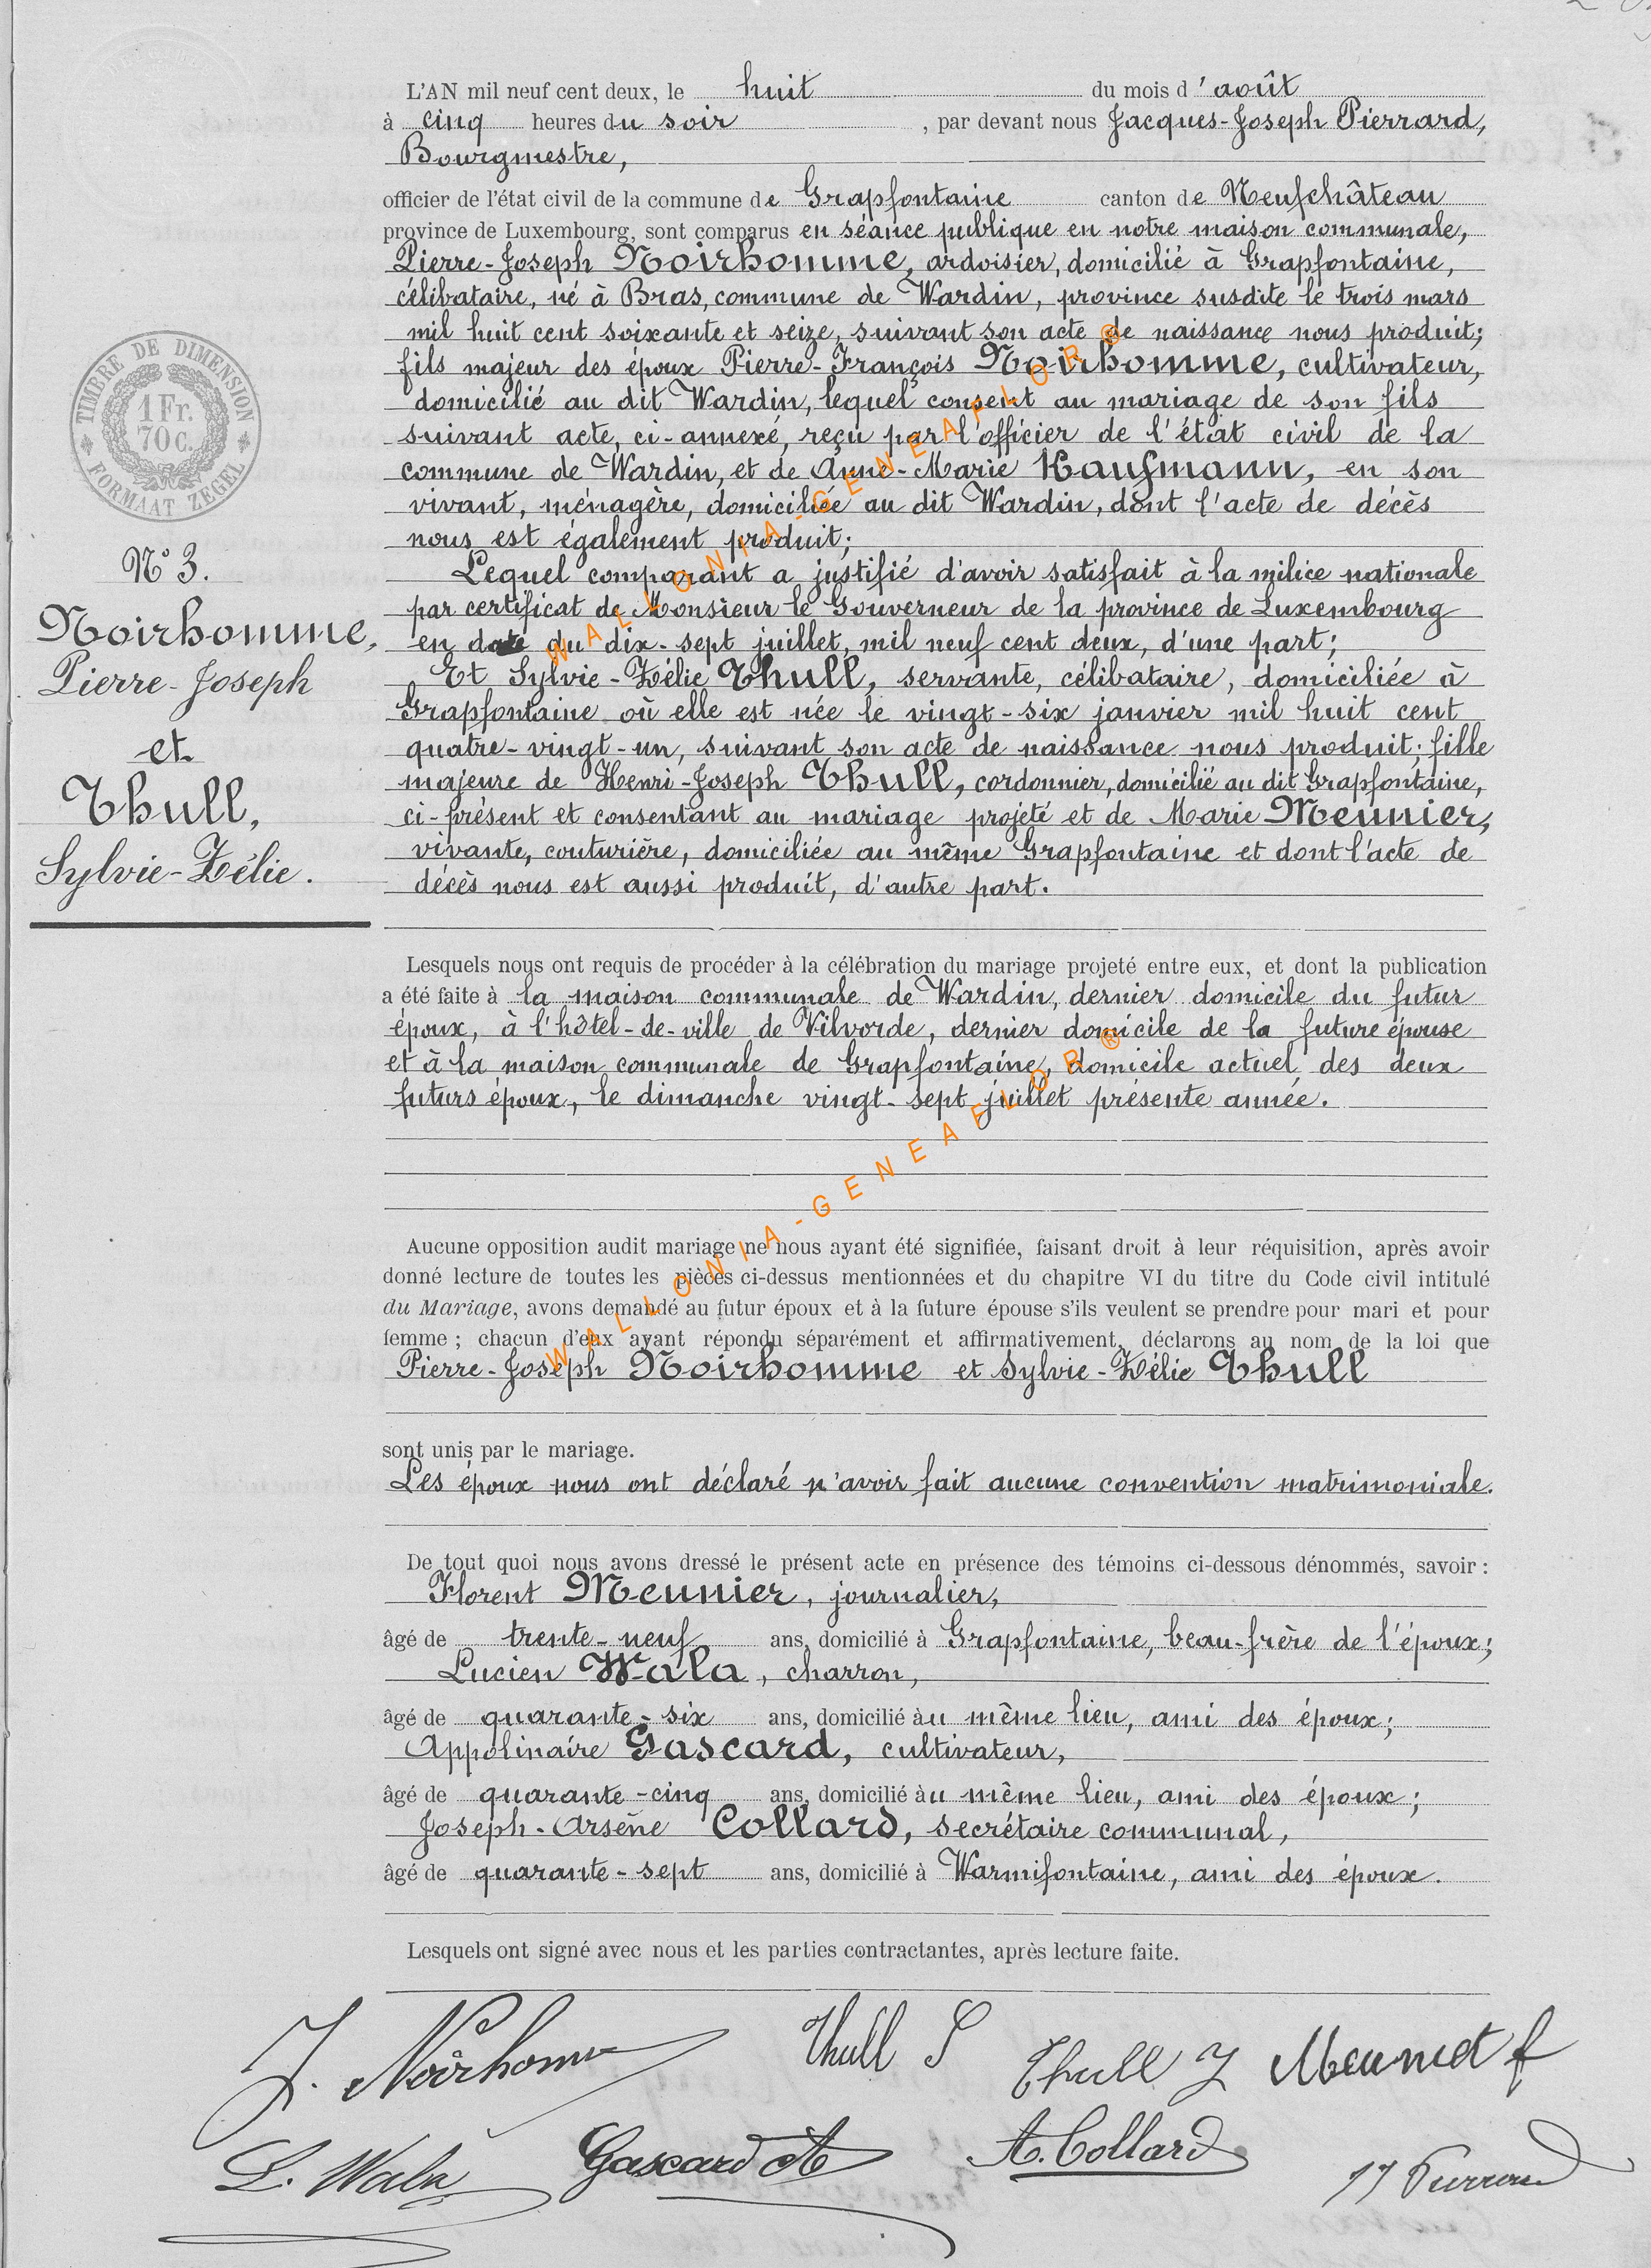 L'AN mil neuf cent deux, le huit du mois d'août
à cinq heures du soir, par devant nous Jacques-Joseph Pierrard,
Bourgmestre,
officier de l'état civil de la commune de Grapfontaine canton de Neufchâteau
province de Luxembourg, sont comparus en séance publique en notre maison communale,
Pierre-Joseph Noirhomme, ardoisier, domicilié à Grapfontaine,
célibataire, né à Bras, commune de Wardin, province susdite le trois mars
mil huit cent soixante et seize, suivant son acte de naissance nous produit;
fils majeur des époux Pierre-François Noirhomme, cultivateur,
domicilié au dit Wardin, lequel consent au mariage de son fils
suivant acte, ci-annexé, reçu par l'officier de l'état civil de la
commune de Wardin, et de Anne-Marie Kaufmann, en son
vivant, ménagère, domiciliée au dit Wardin, dont l'acte de décès
nous est également produit;
Lequel comparant a justifié d'avoir satisfait à la milice nationale
par certificat de Monsieur le Gouverneur de la province de Luxembourg
en date du dix-sept juillet, mil neuf cent deux, d'une part;
Et Sylvie-Zélie Thull, servante, célibataire, domiciliée à
Grapfontaine où elle est née le vingt-six janvier mil huit cent
quatre-vingt-un, suivant son acte de naissance nous produit; fille
majeure de Henri-Joseph Thull, cordonnier, domicilié au dit Grapfontaine,
ci-présent et consentant au mariage projeté et de Marie Meunier,
vivante, couturière, domiciliée au même Grapfontaine et dont l'acte de
décès nous est aussi produit, d'autre part.
TIMBRE DE DIMENSION
1 Fr.
70 C.
FORMAAT ZEGEL
N° 3.
Noirhomme,
Pierre-Joseph
et
Thull,
Sylvie-Zélie.
Lesquels nous ont requis de procéder à la célébration du mariage projeté entre eux, et dont la publication
a été faite à la maison communale de Wardin, dernier domicile du futur
époux, à l'hôtel-de-ville de Vilvorde, dernier domicile de la future épouse
et à la maison communale de Grapfontaine, domicile actuel des deux
futurs époux, le dimanche vingt-sept juillet présente année.
Aucune opposition audit mariage ne nous ayant été signifiée, faisant droit à leur réquisition, après avoir
donné lecture de toutes les pièces ci-dessus mentionnées et du chapitre VI du titre du Code civil intitulé
du Mariage, avons demandé au futur époux et à la future épouse s'ils veulent se prendre pour mari et pour
femme ; chacun d'eux ayant répondu séparément et affirmativement, déclarons au nom de la loi que
Pierre-Joseph Noirhomme et Sylvie-Zélie Thull
sont unis par le mariage.
Les époux nous ont déclaré n'avoir fait aucune convention matrimoniale.
De tout quoi nous avons dressé le présent acte en présence des témoins ci-dessous dénommés, savoir :
Florent Meunier, journalier,
âgé de trente-neuf ans, domicilié à Grapfontaine, beau-frère de l'époux;
Lucien Wala, charron,
âgé de quarante-six ans, domicilié au même lieu, ami des époux;
Appolinaire Gascard, cultivateur,
âgé de quarante-cinq ans, domicilié au même lieu, ami des époux;
Joseph-Arsène Collard, secrétaire communal,
âgé de quarante-sept ans, domicilié à Warmifontaine, ami des époux.
Lesquels ont signé avec nous et les parties contractantes, après lecture faite.
J. Noirhomme Thull S Thull J Meunier f
L. Wala Gascard A A. Collard JJ Pierrard
WALLONIA-GENEAFLOR ®
WALLONIA-GENEAFLOR ®